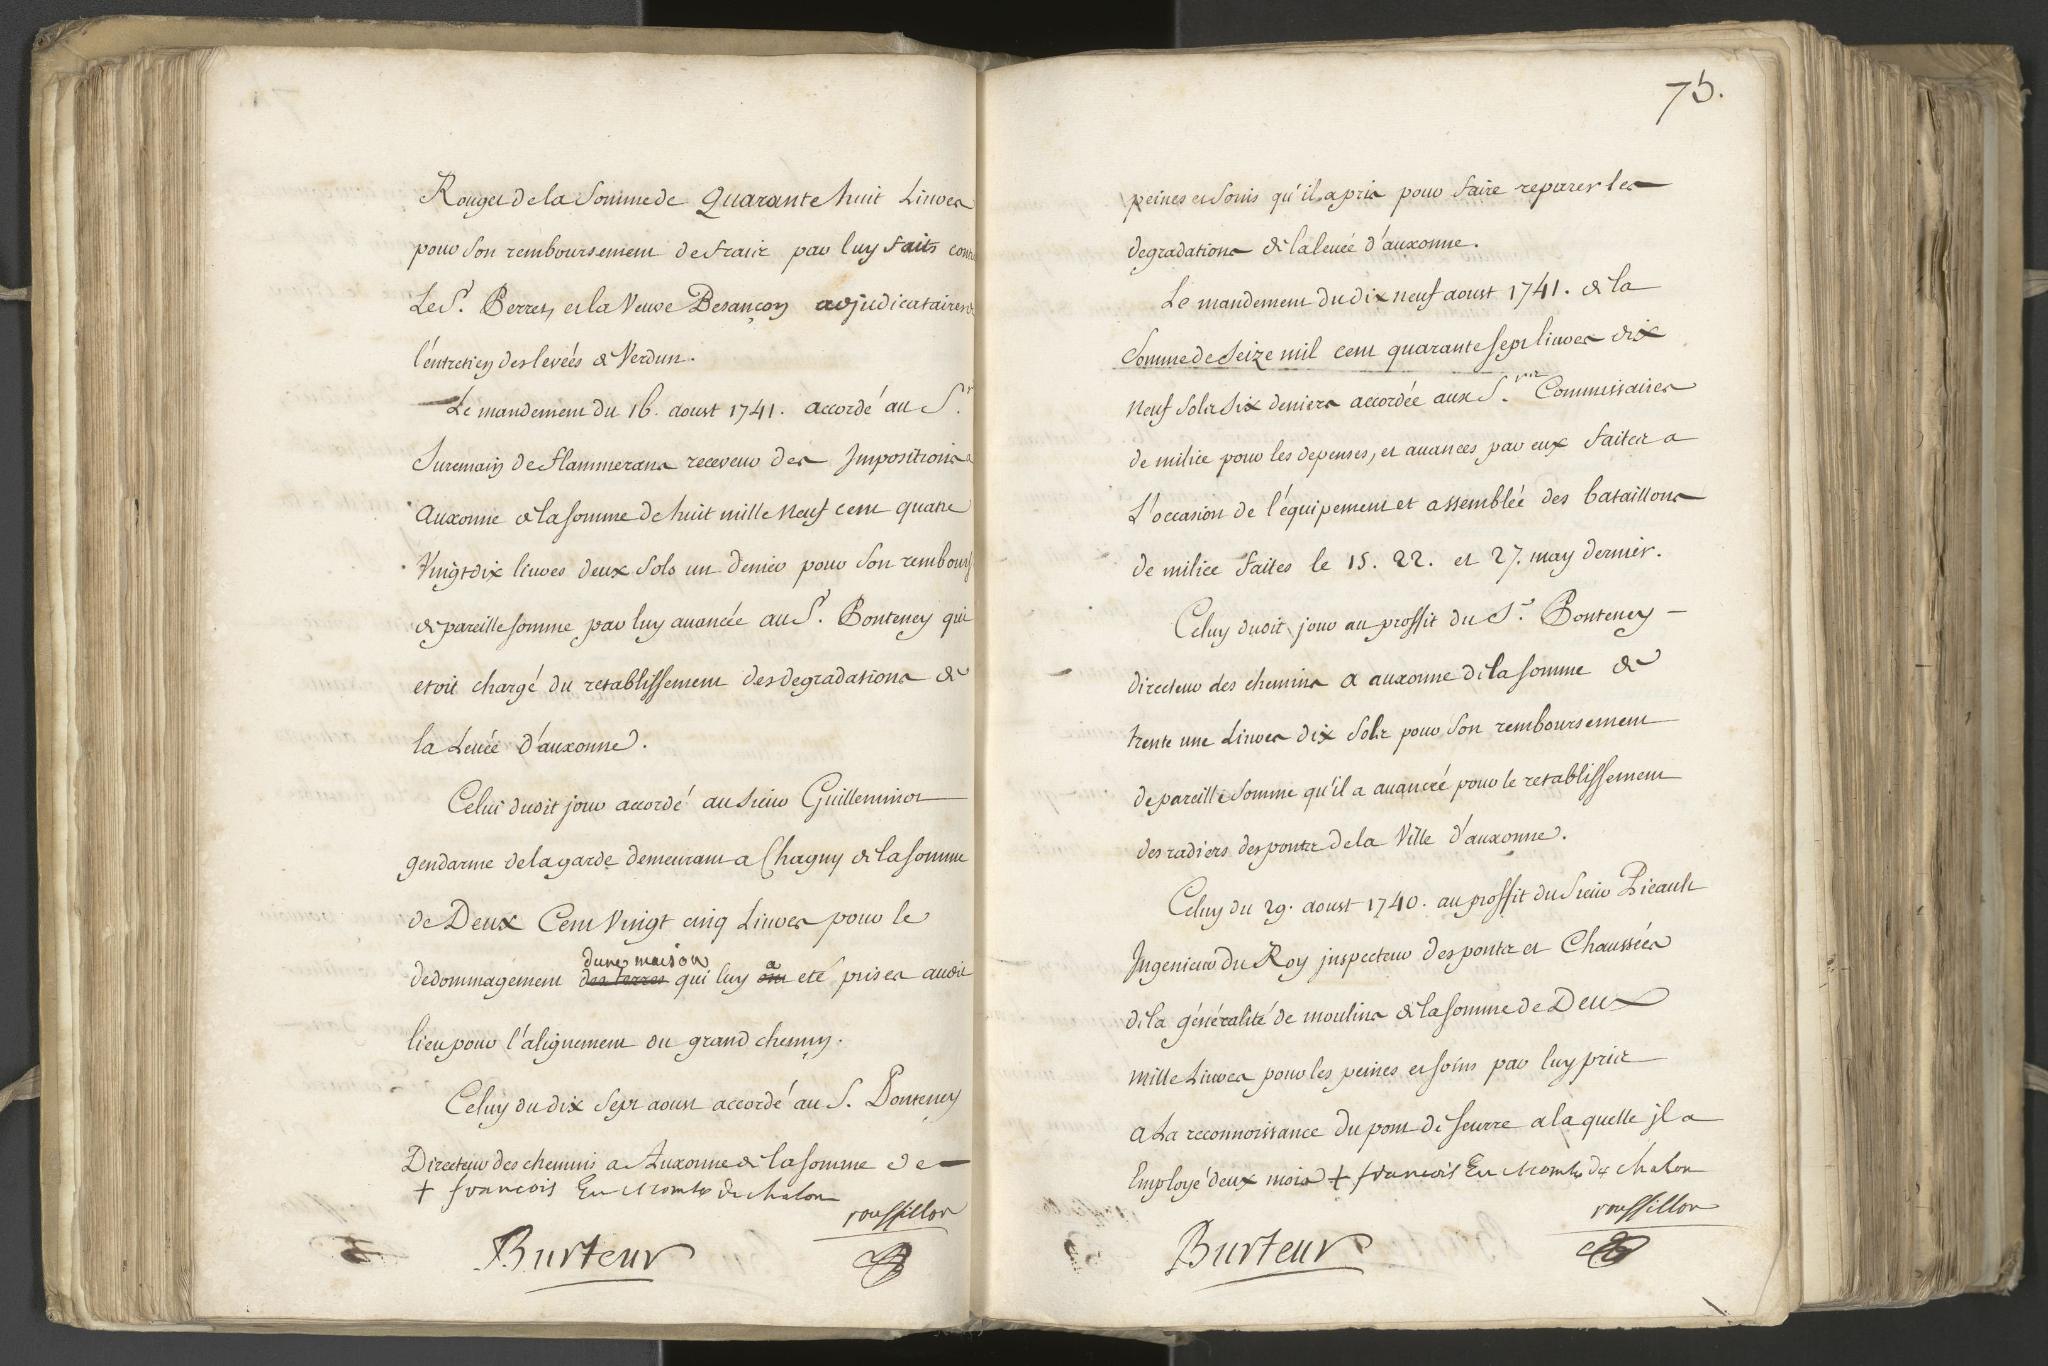 Rouget de la Somme de Quarante huit Livres
pour Son remboursement de fraix par luy faits contre
Le Sr. Perret, et la Veuve Besançon adjudicataires de
l'éntretien des levées de Verdun.
Le mandement du 16. aoust 1741. accordé au Sr.
Suremain de flammerans receveur des Impositions a
Auxonne de la somme de huit mille neuf cent quatre
Vingt dix livres deux sols un denier pour Son rembours
de pareille somme par luy avancée au Sr. Ponteney qui
etoit chargé du retablissement des degradations de
la Levée d'auxonne.
Celui dudit jour accordé au sieur Guilleminot
gendarme de la garde demeurant a Chagny de la somme
de Deux Cent Vingt cinq Livres pour le
dune maison a
dedommagement des terres qui luy ont eté prises audit
lieu pour l'alignement du grand chemin.
Celuy du dix Sept aoust accordé au S. Ponteney
Directeur des chemins a Auxonne de la somme de
+ francois Ev et Comte de chalon
roussillon
Burteur
75.
peines et soins qu'il a pris pour faire reparer les
degradations de la levée d'auxonne.
Le mandement du dix neuf aoust 1741. de la
Somme de Seize mil cent quarante sept livres dix
neuf sols six deniers accordée aux Srs. Commissaires
de milice pour les depenses, et avances par eux faites a
L'occasion de l'équipement et assemblée des bataillons
de milice faites le 15. 22. et 27. may dernier.
Celuy dudit jour au proffit du Sr. Ponteney
directeur des chemins a auxonne de la somme de
trente une Livres dix sols pour Son remboursement
de pareille Somme qu'il a avancée pour le retablissement
des radiers des ponts de la Ville d'auxonne.
Celuy du 29. aoust 1740. au proffit du Sieur Picault
Ingenieur du Roy inspecteur des ponts et Chaussées
de la généralité de moulins de la somme de Deux
mille Livres pour les peines et soins par luy pris
a La reconnoissance du pont de seurre a laquelle jl a
Employé deux mois + francois Ev et Comte de chalon
roussillon
Burteur